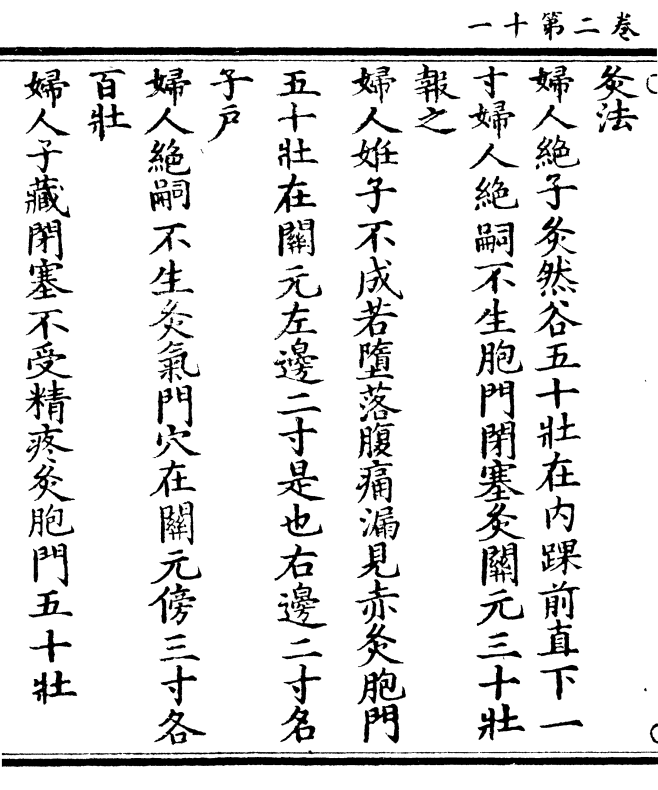 卷二第十一
灸法
婦人絶子灸然谷五十壯在内踝前直下一
寸婦人絶嗣不生胞門閉塞灸關元三十壯
報之
婦人姙子不成若墮落腹痛漏見赤灸胞門
五十壯在關元左邊二寸是也右邊二寸名
子戸
婦人絶嗣不生灸氣門穴在關元傍三寸各
百壯
婦人子藏閉塞不受精疼灸胞門五十壯